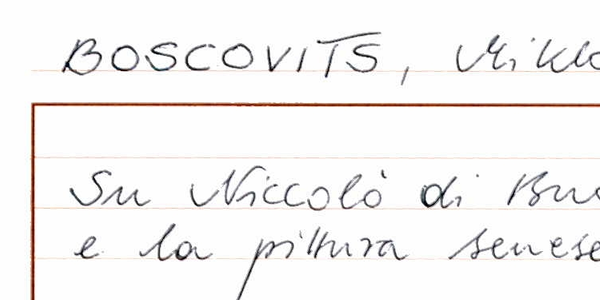 BOSCOVITS, Mikl
Su Niccolò di Bu
e la pittura senese